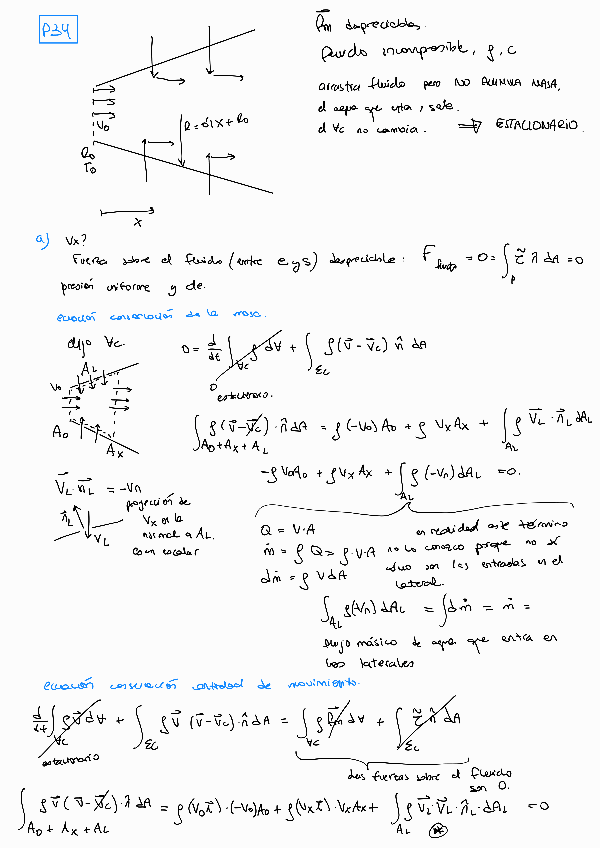 P34
f̄m despreciables.
fluido incompresible, ρ, c
arrastra fluido pero NO ACUMULA MASA,
el agua que entra, sale.
el ∀c no cambia. ⇒ ESTACIONARIO.
V0
R = αx + R0
R0
T0
x
a) Vx?
Fuerza sobre el fluido (entre e y s) despreciable: F fluido = 0 = ∫ τ̃ n̂ dA = 0
presión uniforme y de.
ecuación conservación de la masa.
dijo ∀c.
0 = d/dt ∫∀c ρ d∀ + ∫Σc ρ(v̄ - v̄c) n̂ dA
0
estacionario.
V0 AL
A0 Ax
∫A0+Ax+AL ρ(v̄ - v̄c)·n̂ dA = ρ(-V0)A0 + ρ Vx Ax + ∫AL ρ V̄L · n̄L dAL
-ρV0A0 + ρVxAx + ∫AL ρ(-Vn) dAL = 0.
V̄L · n̄L = -Vn
proyección de
Vx en la
normal a AL.
como escalar
n̄L VL
Q = V·A
ṁ = ρ Q = ρ·V·A
dṁ = ρ V dA
en realidad este término
no lo conozco porque no sé
cómo son las entradas en el
lateral.
∫AL ρ(Vn) dAL = ∫dṁ = ṁ =
flujo másico de agua que entra en
los laterales
ecuación conservación cantidad de movimiento.
d/dt ∫∀c ρ v̄ d∀ + ∫Σc ρ v̄ (v̄ - v̄c)·n̂ dA = ∫∀c ρ f̄m d∀ + ∫Σc τ̃ n̂ dA
estacionario
las fuerzas sobre el fluido
son 0.
∫A0 + Ax + AL ρ v̄ (v̄ - v̄c)·n̂ dA = ρ(V0 ī)·(-V0)A0 + ρ(Vx ī)·VxAx + ∫AL ρ V̄L·V̄L·n̄L·dAL = 0